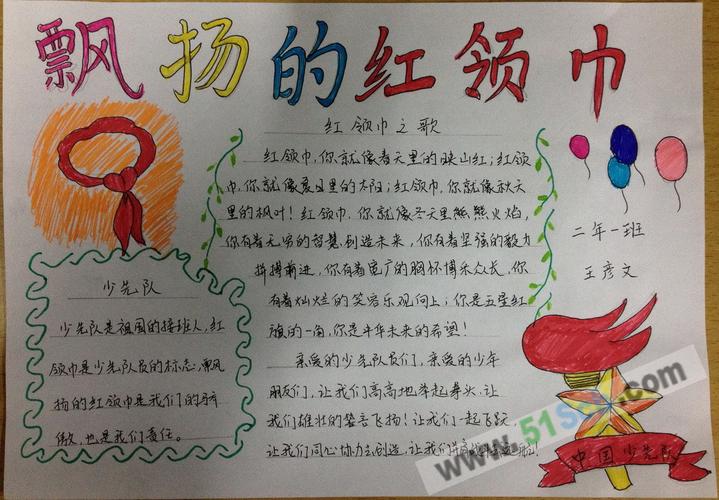 飘扬的红领巾
红领巾之歌
红领巾,你就像春天里的映山红;红领
巾,你就像夏日里的太阳;红领巾,你就像秋天
里的枫叶!红领巾,你就像冬天里熊熊火焰,
你有着无穷的智慧创造未来,你有着坚强的毅力
拼搏前进,你有着宽广的胸怀博采众长,你
有着灿烂的笑容乐观向上;你是五星红
旗的一角,你是中华未来的希望!
亲爱的少先队员们,亲爱的少年
朋友们,让我们高高地举起火,让
我们雄壮的誓言飞扬!让我们一起飞跃,
让我们同心协力去创造,让我们
少先队
少先队是祖国的接班人,红
领巾是少先队员的标志,飘
扬的红领巾是我们的骄
傲,也是我们责任。
二年一班
王彦文
中国少先队
www.51s.com